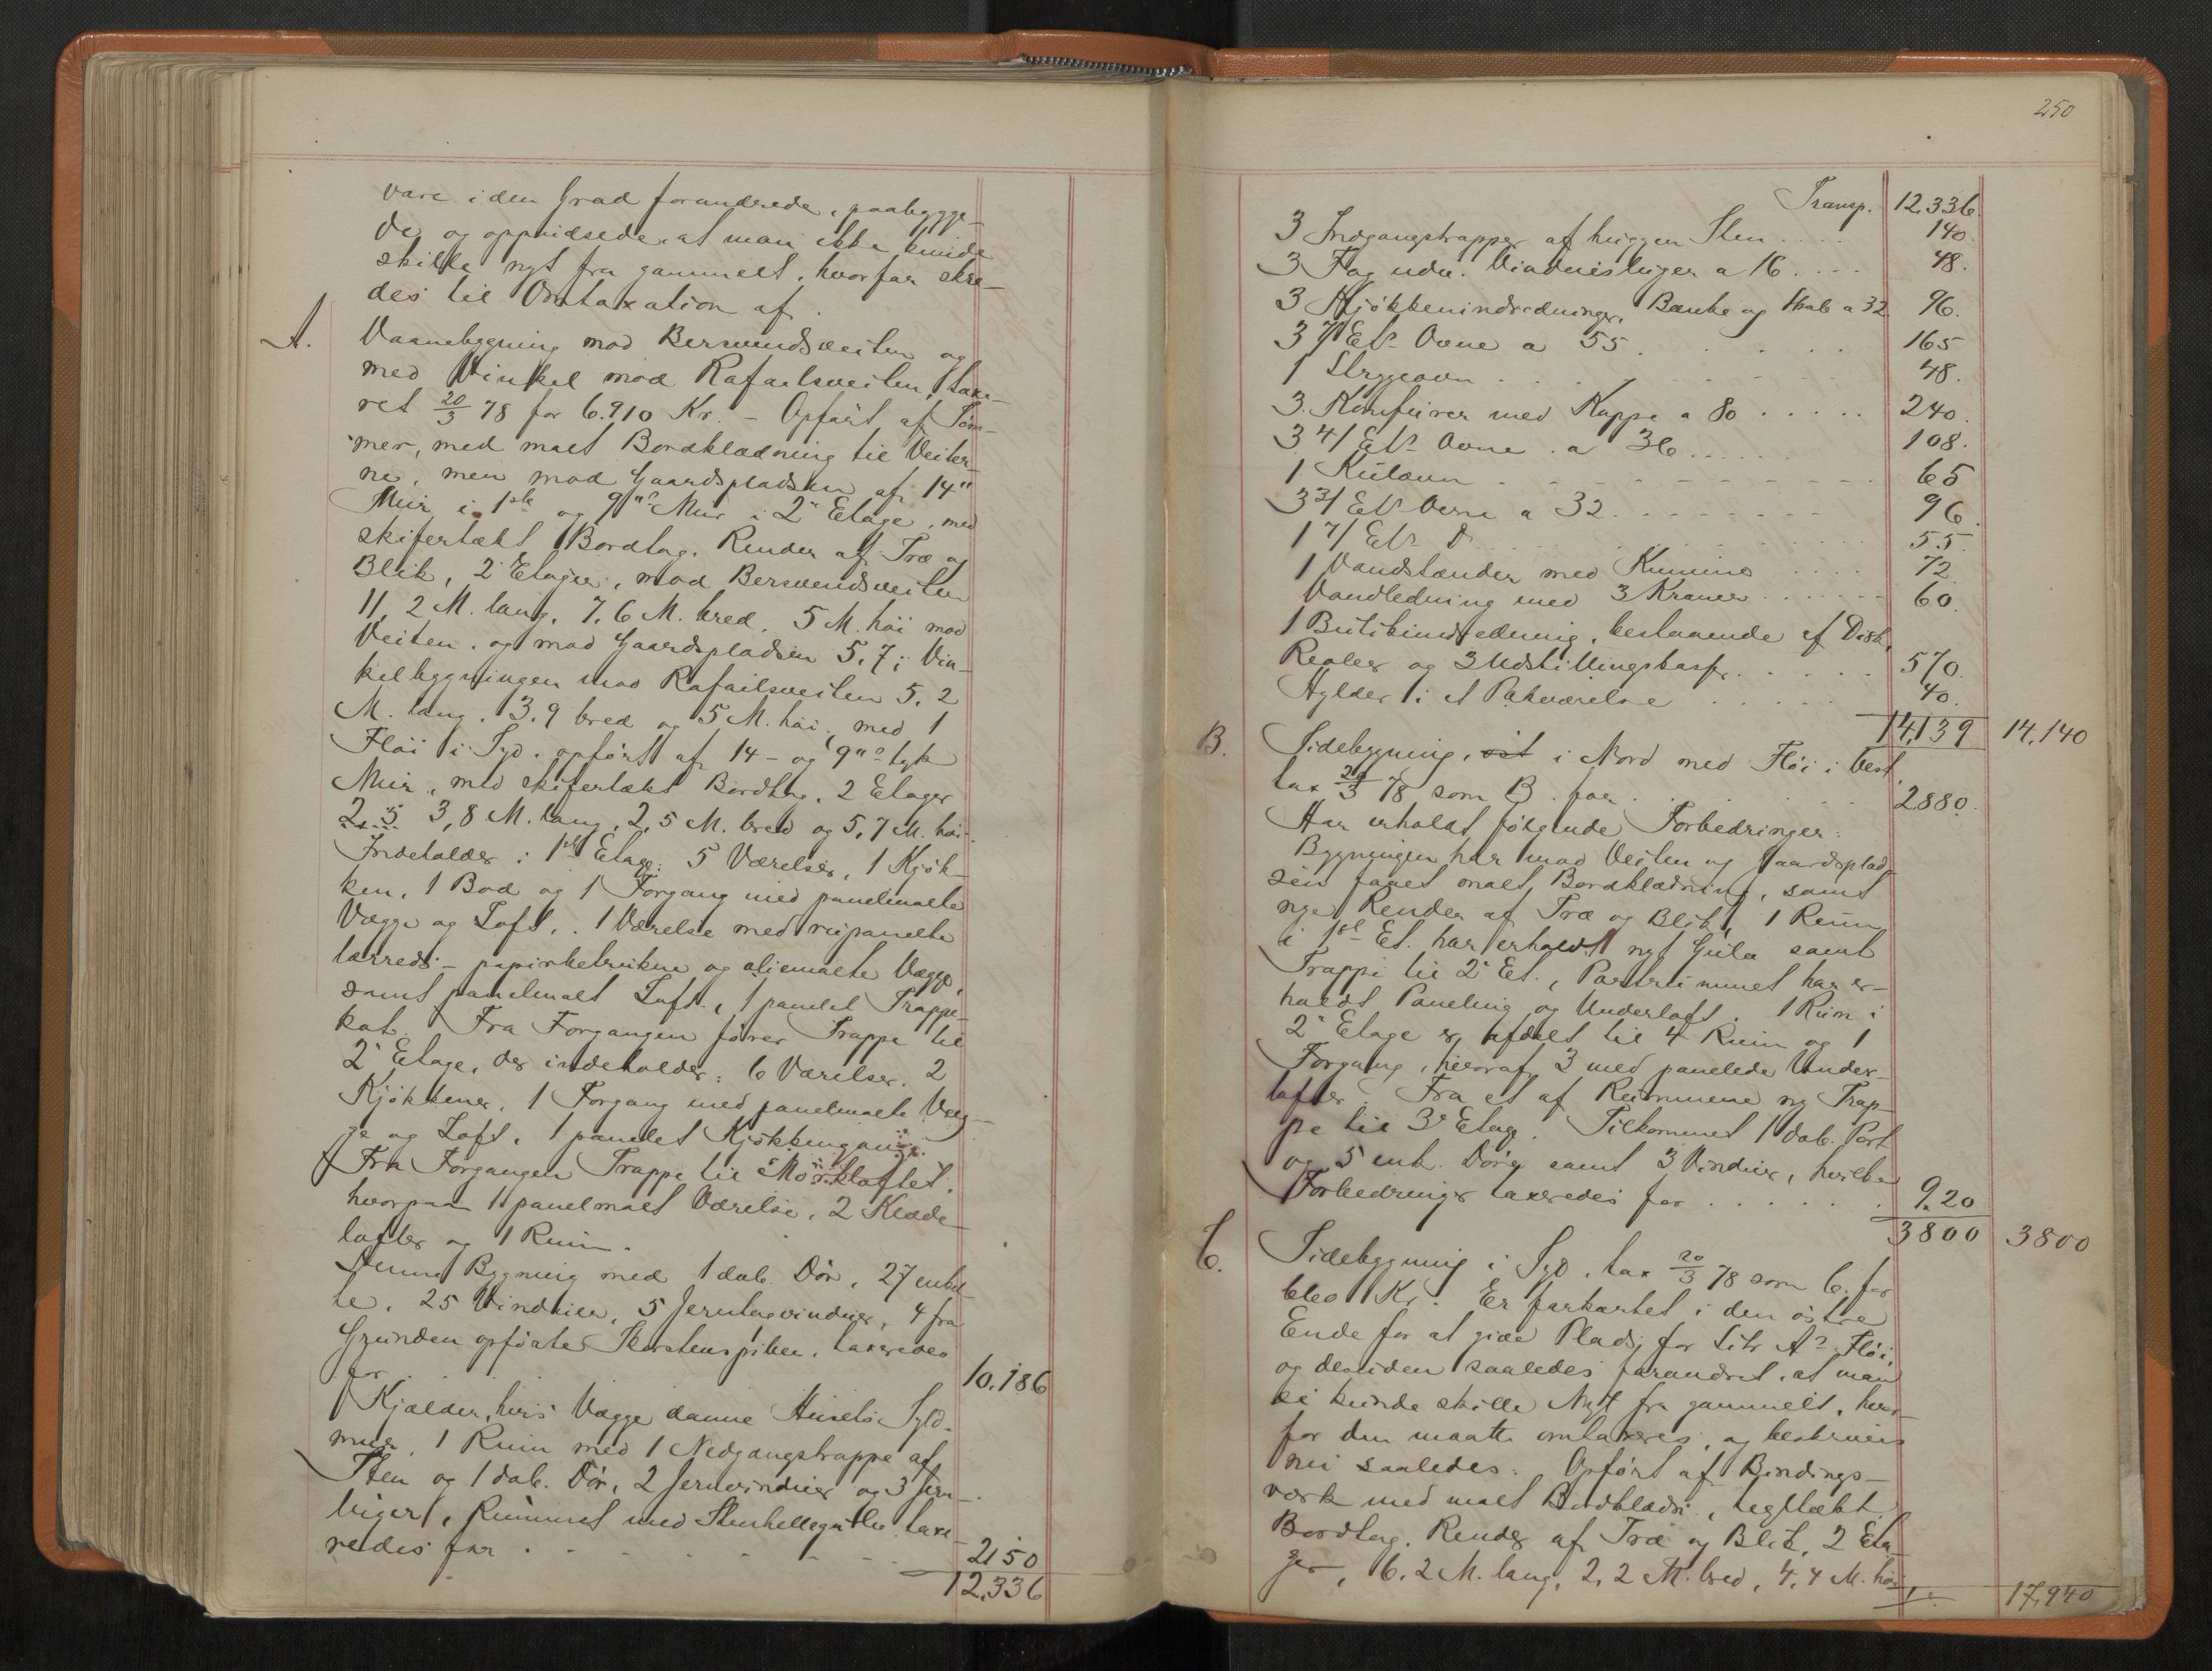 vare i den Grad forandrede, paabygge-
de og oppudsede, at man ikke kunde
skille nyt fra gammelt, hvorfor skre-
des til Omtaxation af.
A. Vaanebygning mod Bersvendsveiten og
med Vinkel mod Rafaelsveiten, taxe-
ret 20/3 78 for 6.910 Kr. – Opført af Tøm-
mer, med malt Bordklædning til Veiter-
ne, men mod Gaardspladsen af 14"
Mur i 1ste og 9" Mur i 2n Etage, med
skifertækt Bordtag. Render af Træ og
Blik, 2 Etager, mod Bersvendsveiten
11,2 M. lang, 7,6 M. bred, 5 M. høi mod
Veiten og mod Gaardspladsen 5,7; Vin-
kelbygningen mod Rafailsveiten 5,2
M. lang, 3,9 bred og 5 M. høi, med 1
Fløi i Syd, opført af 14- og 9" tyk
Mur, med skifertækt Bordtag, 2 Etager
2,5 3,8 M. lang, 2,5 M. bred og 5,7 M. høi.
Indeholder i 1ste Etage: 5 Værelser, 1 Kjøk-
ken, 1 Bod og 1 Forgang med panelmalte
Vægge og Loft, 1 Værelse med panelte
lærreds- papirbetrukne og oliemalte Vægge,
samt panelmalt Loft, 1 panelet Trappe-
kot. Fra Forgangen fører Trappe til
2n Etage, der indeholder: 6 Værelser, 2
Kjøkkener, 1 Forgang med panelmalte Væg-
ge og Loft, 1 panelet Kjøkkengang.
Fra Forgangen Trappe til Mørkloftet,
hvorpaa 1 panelmalt Værelse, 2 Klæde-
lofter og 1 Rum.
Denne Bygning med 1 dob. Dør, 27 enkel-
te, 25 Vinduer, 5 Jerntagvinduer, 4 fra
Grunden opførte Skorstenspiber, taxeredes
for . 10,186
Kjælder, hvis Vægge danne Husets Syld-
mur, 1 Rum med 1 Nedgangstrappe af
Sten og 1 dob. Dør, 2 Jernvinduer og 3 Jern-
luger, Rummet med Stenhellegulv taxe-
redes for . . . . . . 2150
12,336
250
Transp. 12,336.
3 Indgangstrapper af huggen Sten . . . . 140.
3 Fag udv. Vinduesluger a 16 . . . . 48.
3 Kjøkkenindredninger, Bænke og Skab a 32 96.
3 7/ Ets Ovne a 55 . . . . . 165
1 Strygeovn . . . . . . 48.
3 Komfurer med Kappe a 80 . . . . . 240.
3 4/ Ets Ovne a 36 . . . . . 108.
1 Kulovn . . . . . . 65
3 3/ Ets Ovne a 32 . . . . . . 96.
1 7/ Ets D . . . . . . 55.
1 Vandstænder med Kumme . . . . 72.
Vandledning med 3 Kraner . . . . . 60.
1 Butikindredning, bestaaende af Disk,
Reoler og 3 Udstillingskasser . . . . . 570.
Hylder i et Pakværelse . . . . . 40.
14,139 14,140
B. Sidebygning, øst i Nord med Fløi i Vest,
tax 20/3 78 som B. for . . . . . 2880.
Har erholdt følgende Forbedringer:
Bygningen har mod Veiten og Gaardsplad-
sen faaet malt Bordklædning, samt
nye Render af Træ og Blik, 1 Rum
i 1ste Et. har erholdt nyt Gulv samt
Trappe til 2n Et., Portrummet har er-
holdt Paneling og Underloft. 1 Rum i
2n Etage er afdelt til 4 Rum og 1
Forgang, hvoraf 3 med panelede Under-
lofter. Fra et af Rummene ny Trap-
pe til 3e Etage. Tilkommet 1 dob. Port
og 5 enk. Døre samt 3 Vinduer, hvilke
Forbedringer taxeredes for . . . . . . 920
3800 3800
C. Sidebygning i Syd, tax 20/3 78 som C. for
Kr. Er forkortet i den østre
Ende for at give Plads for Litr As Fløi,
og desuden saaledes forandret, at man
ei kunde skille Nyt fra gammelt, hvor-
for den maatte omtaxeres, og beskrives
nu saaledes: Opført af Bindings-
værk med malt Bordklædn., tegltækt
Bordtag, Render af Træ og Blik, 2 Eta-
ger, 6,2 M. lang, 2,2 M. bred, 4,4 M. høi,
17,940